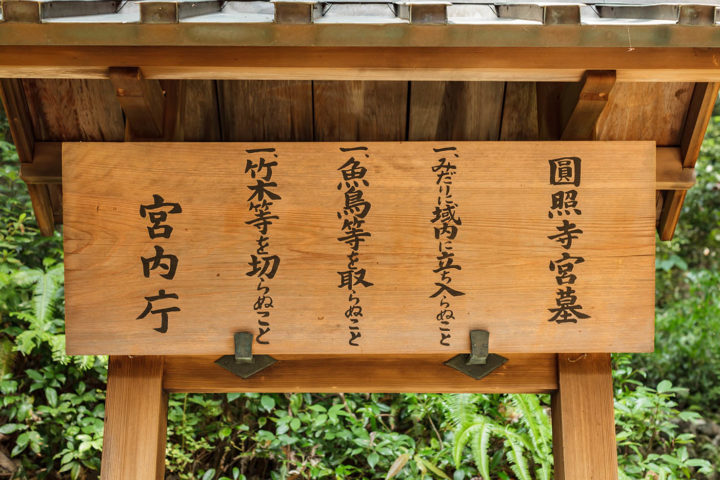 圓照寺宮墓
一、みだりに域内に立ち入らぬこと
一、魚鳥等を取らぬこと
一、竹木等を切らぬこと
宮内庁